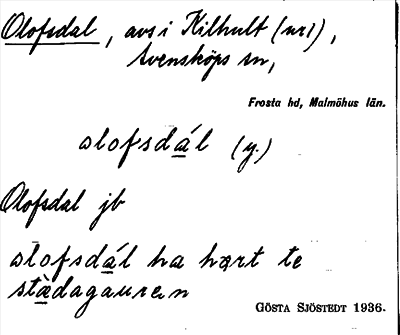 Olofsdal, avs i Kilhult (nr 1),
Svensköps sn,
Frosta hd, Malmöhus län.
olofsdál (y.)
Olofsdal jb
olofsdál ha hært te
stàdagauren
GÖSTA SJÖSTEDT 1936.